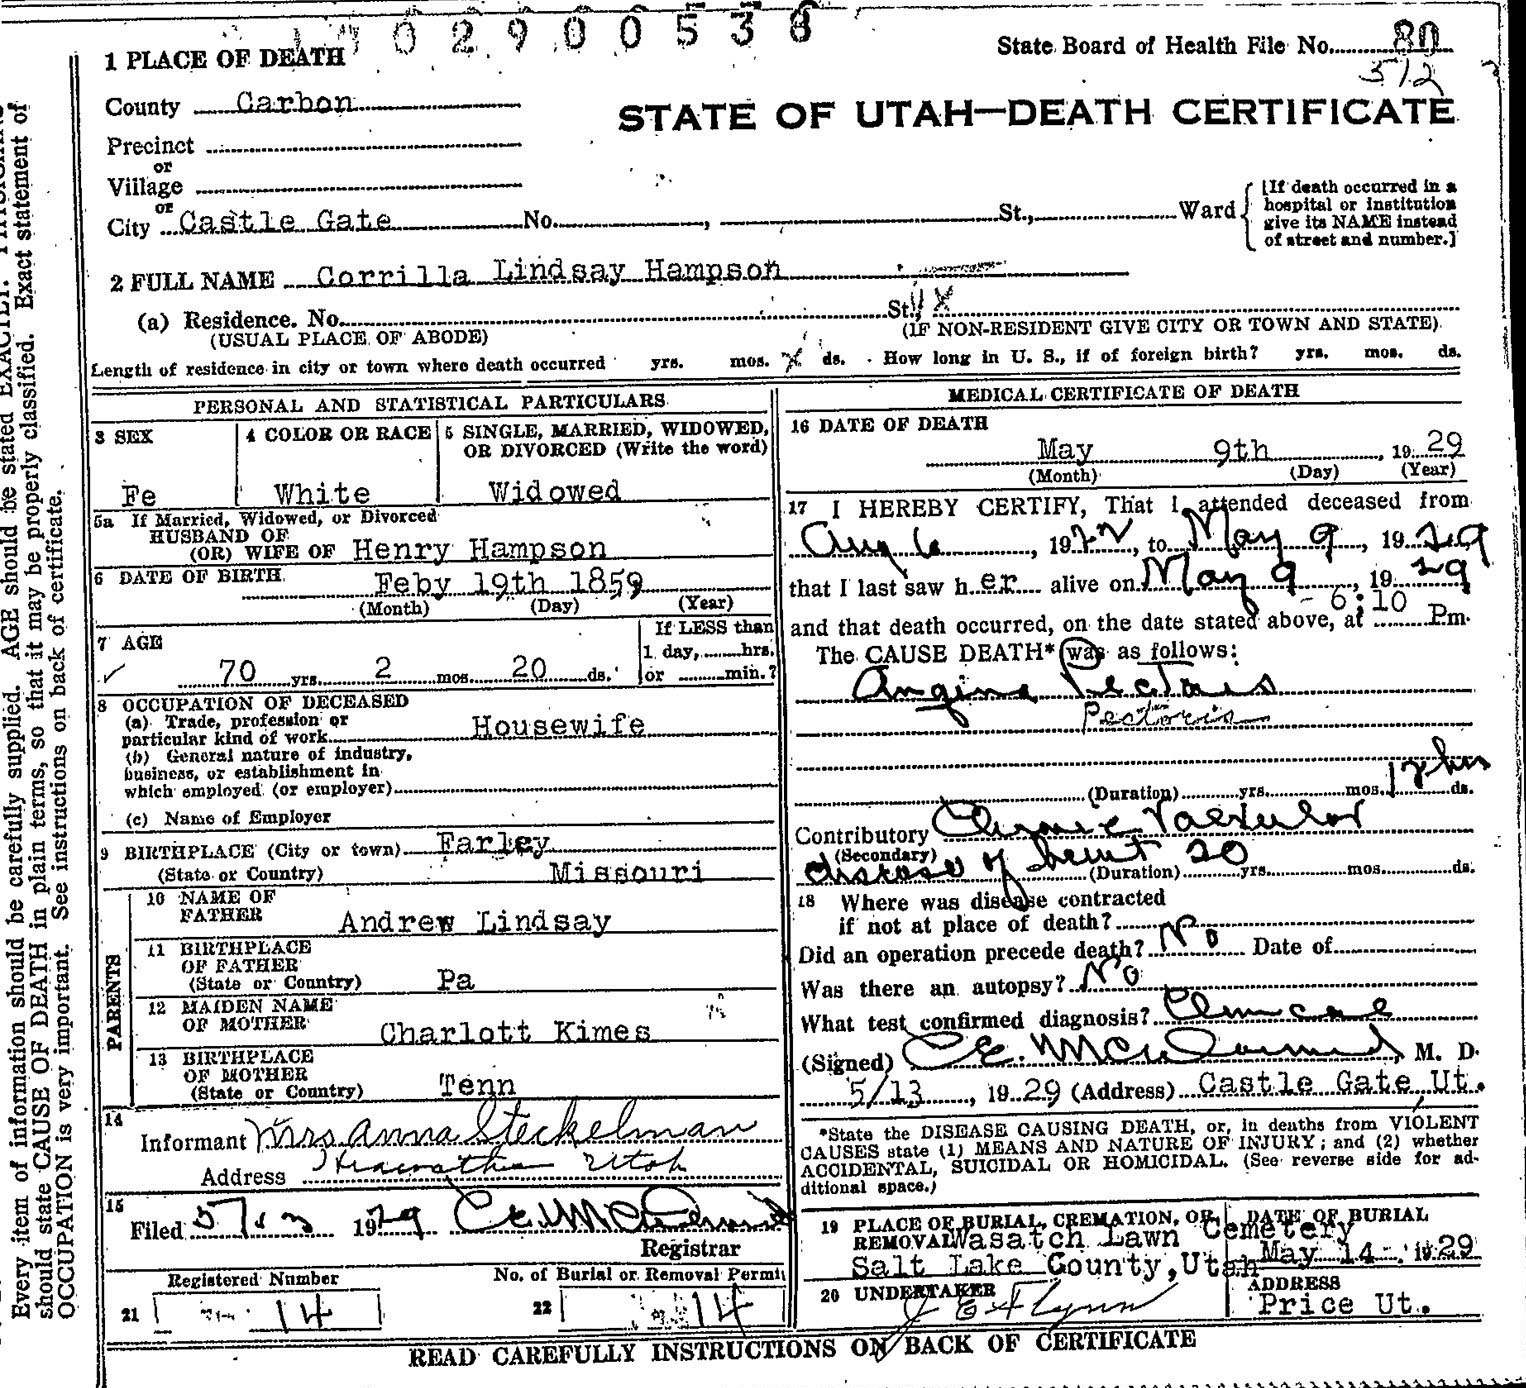 02900538
State Board of Health File No. 80
512
1 PLACE OF DEATH
County Carbon
STATE OF UTAH—DEATH CERTIFICATE
Precinct
or
Village
or
City Castle Gate No. , St., Ward
[If death occurred in a
hospital or institution
give its NAME instead
of street and number.]
2 FULL NAME Corrilla Lindsay Hampson
(a) Residence. No. St.,
(USUAL PLACE OF ABODE) (IF NON-RESIDENT GIVE CITY OR TOWN AND STATE)
Length of residence in city or town where death occurred yrs. mos. ds. How long in U. S., if of foreign birth? yrs. mos. ds.
PERSONAL AND STATISTICAL PARTICULARS
3 SEX
Fe
4 COLOR OR RACE
White
5 SINGLE, MARRIED, WIDOWED,
OR DIVORCED (Write the word)
Widowed
5a If Married, Widowed, or Divorced
HUSBAND OF
(OR) WIFE OF Henry Hampson
6 DATE OF BIRTH Feby 19th 1859
(Month) (Day) (Year)
7 AGE
70 yrs. 2 mos 20 ds.
If LESS than
1 day, hrs.
or min.?
8 OCCUPATION OF DECEASED
(a) Trade, profession or
particular kind of work Housewife
(b) General nature of industry,
business, or establishment in
which employed (or employer)
(c) Name of Employer
9 BIRTHPLACE (City or town) Farley
(State or Country) Missouri
PARENTS
10 NAME OF
FATHER Andrew Lindsay
11 BIRTHPLACE
OF FATHER
(State or Country) Pa
12 MAIDEN NAME
OF MOTHER Charlott Kimes
13 BIRTHPLACE
OF MOTHER
(State or Country) Tenn
14
Informant Mrs Anna Steckelman
Address Hiawatha Utah
15
Filed 5/13 1929
Registrar
Registered Number
21 14
No. of Burial or Removal Permit
22 14
MEDICAL CERTIFICATE OF DEATH
16 DATE OF DEATH
May 9th , 19 29
(Month) (Day) (Year)
17 I HEREBY CERTIFY, That I attended deceased from
Aug 6 , 1922, to May 9 , 19 29
that I last saw her alive on May 9 , 19 29
and that death occurred, on the date stated above, at 6:10 Pm.
The CAUSE DEATH* was as follows:
Angina Pectoris
Pectoris
12 hrs
(Duration) yrs. mos. ds.
Contributory Chronic Valvular
(Secondary)
disease of heart 20
(Duration) yrs. mos. ds.
18 Where was disease contracted
if not at place of death?
Did an operation precede death? No Date of
Was there an autopsy? No
What test confirmed diagnosis? Clinical
(Signed) , M. D.
5/13 , 19 29 (Address) Castle Gate, Ut.
*State the DISEASE CAUSING DEATH, or, in deaths from VIOLENT
CAUSES state (1) MEANS AND NATURE OF INJURY; and (2) whether
ACCIDENTAL, SUICIDAL OR HOMICIDAL. (See reverse side for ad-
ditional space.)
19 PLACE OF BURIAL, CREMATION, OR
REMOVAL Wasatch Lawn Cemetery
Salt Lake County, Utah
DATE OF BURIAL
May 14 1929
20 UNDERTAKER
J E Flynn
ADDRESS
Price Ut.
READ CAREFULLY INSTRUCTIONS ON BACK OF CERTIFICATE
Every item of information should be carefully supplied. AGE should be stated EXACTLY. PHYSICIANS
should state CAUSE OF DEATH in plain terms, so that it may be properly classified. Exact statement of
OCCUPATION is very important. See instructions on back of certificate.